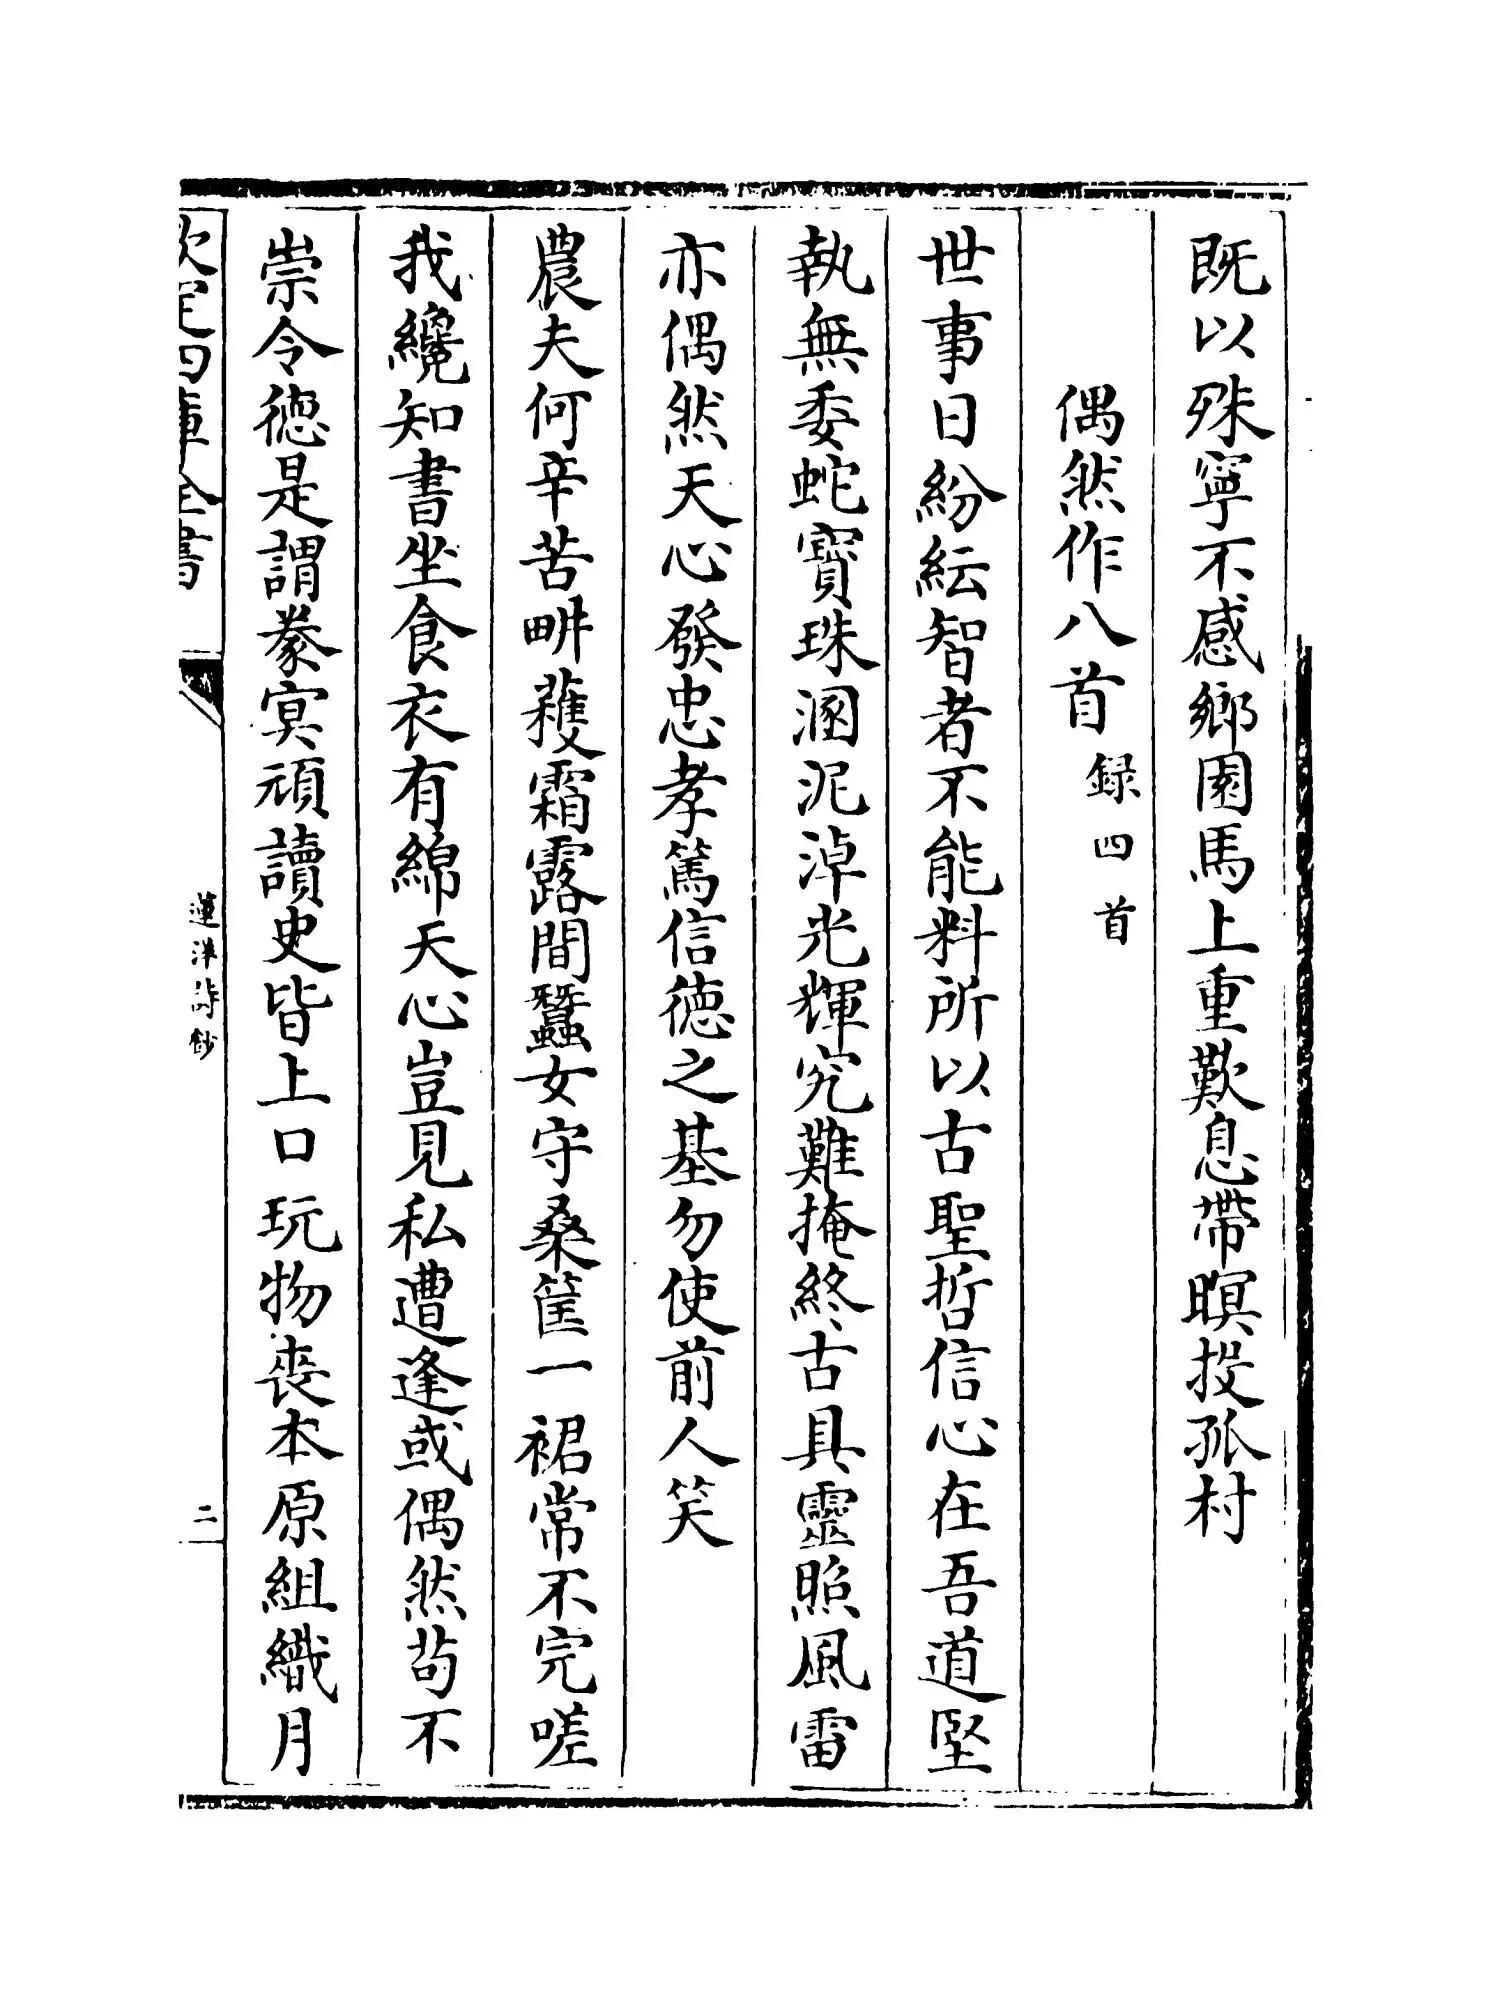 既以殊寧不感鄉園馬上重歎息帶暝投孤村
偶然作八首 録四首
世事日紛紜智者不能料所以古聖哲信心在吾道堅
執無委蛇寶珠溷泥淖光輝究難掩終古具靈照風雷
亦偶然天心發忠孝篤信德之基勿使前人笑
農夫何辛苦畊穫霜露間蠶女守桑筐一裙常不完嗟
我纔知書坐食衣有綿天心豈見私遭逢或偶然茍不
崇令德是謂豢冥頑讀史皆上口玩物喪本原組織月
欽定四庫全書
蓮洋詩鈔
二